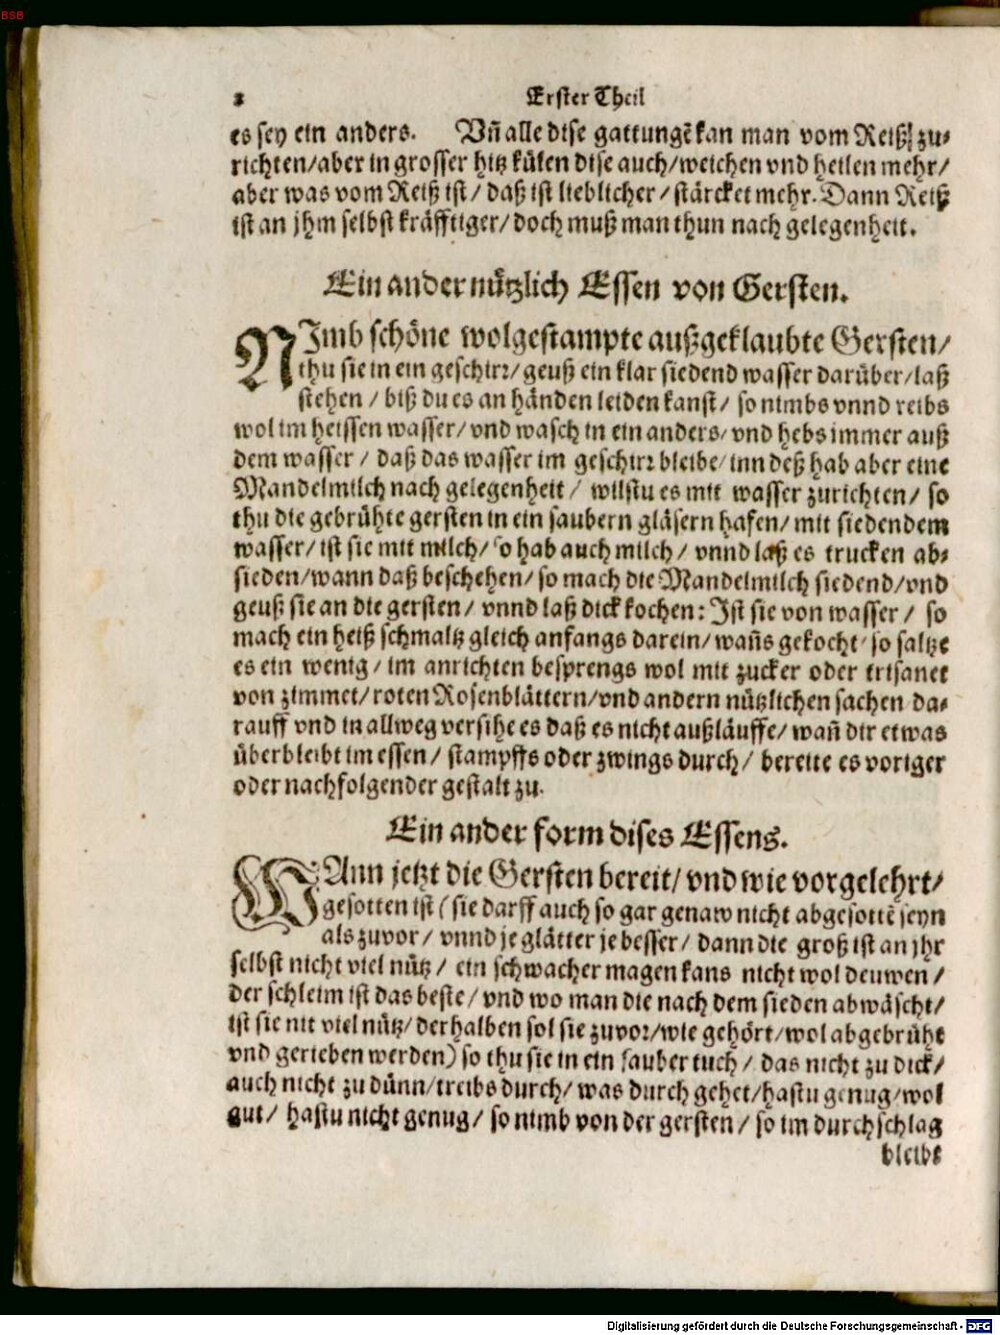 BSB
2 Erster Theil
es sey ein anders. Vñ alle dise gattungẽ kan man vom Reiß zu-
richten/aber in grosser hitz külen dise auch/weichen vnd heilen mehr/
aber was vom Reiß ist/ daß ist lieblicher/ stärcket mehr. Dann Reiß
ist an jhm selbst kräfftiger/ doch muß man thun nach gelegenheit.
Ein ander nützlich Essen von Gersten.
NImb schöne wolgestampte außgeklaubte Gersten/
thu sie in ein geschirr/ geuß ein klar siedend wasser darüber/ laß
stehen / biß du es an händen leiden kanst/ so nimbs vnnd reibs
wol im heissen wasser/ vnd wasch in ein anders/ vnd hebs immer auß
dem wasser / daß das wasser im geschirr bleibe/ inn deß hab aber eine
Mandelmilch nach gelegenheit / wilstu es mit wasser zurichten/ so
thu die gebrühte gersten in ein saubern gläsern hafen/ mit siedendem
wasser/ ist sie mit milch/ so hab auch milch / vnnd laß es trucken ab-
sieden/wann daß beschehen/ so mach die Mandelmilch siedend/vnd
geuß sie an die gersten/ vnnd laß dick kochen: Ist sie von wasser / so
mach ein heiß schmaltz gleich anfangs darein/ wañs gekocht/ so saltze
es ein wenig/ im anrichten besprengs wol mit zucker oder trisanet
von zimmet/ roten Rosenblättern/vnd andern nützlichen sachen da-
rauff vnd in allweg versihe es daß es nicht außläuffe/ wañ dir etwas
überbleibt im essen/ stampffs oder zwings durch/ bereite es voriger
oder nachfolgender gestalt zu.
Ein ander form dises Essens.
WAnn jetzt die Gersten bereit/ vnd wie vorgelehrt/
gesotten ist (sie darff auch so gar genaw nicht abgesottẽ seyn
als zuvor/ vnnd je glätter je besser/ dann die groß ist an jhr
selbst nicht viel nütz/ ein schwacher magen kans nicht wol deuwen/
der schleim ist das beste/ vnd wo man die nach dem sieden abwäscht/
ist sie nit viel nütz/ derhalben sol sie zuvor/wie gehört/wol abgebrüht
vnd gerieben werden) so thu sie in ein sauber tuch / das nicht zu dick/
auch nicht zu dünn/treibs durch/ was durch gehet/hastu genug/wol
gut/ hastu nicht genug/ so nimb von der gersten/ so im durchschlag
bleibt
Digitalisierung gefördert durch die Deutsche Forschungsgemeinschaft - DFG